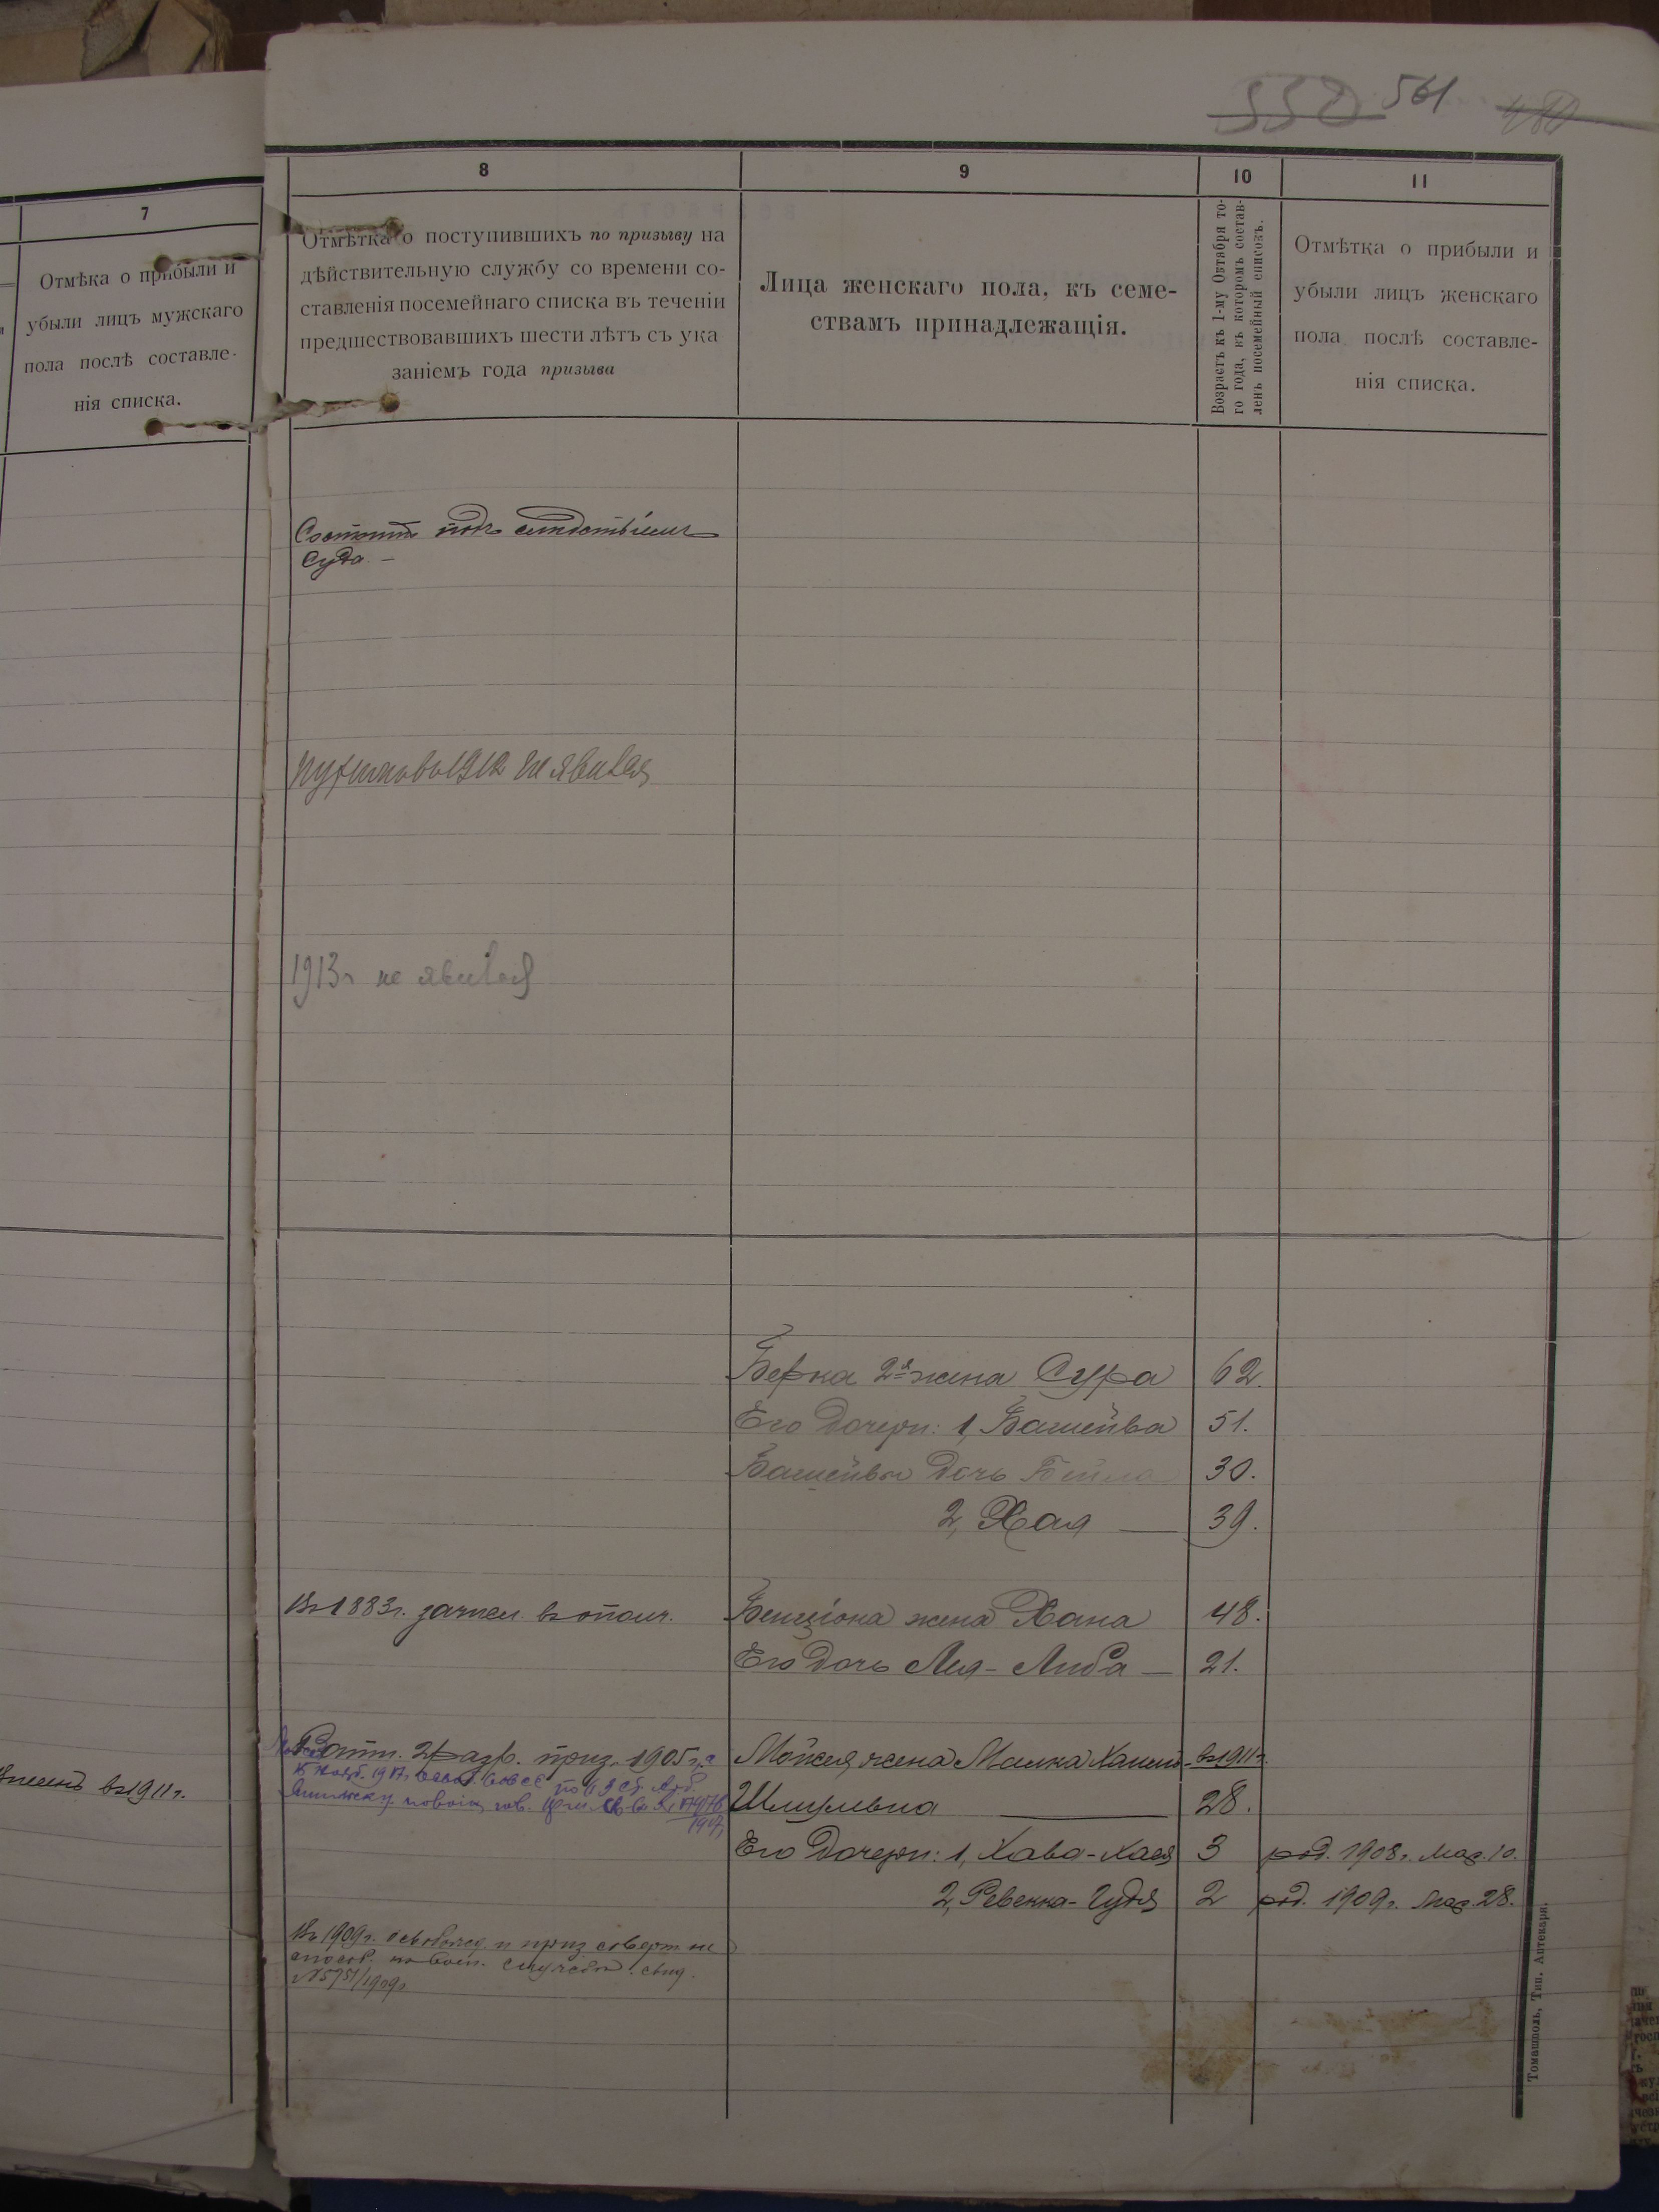 550 561 480
7
Отмѣка о прибыли и
убыли лицъ мужскаго
пола послѣ составле-
нія списка.
въ 1911 г.
8
Отмѣтка о поступившихъ по призыву на
дѣйствительную службу со времени со-
ставленія посемейнаго списка въ теченіи
предшествовавшихъ шести лѣтъ съ ука
заніемъ года призыва
9
Лица женскаго пола, къ семе-
ствамъ принадлежащія.
10
Возрастъ къ 1-му Октября то-
го года, въ которомъ состав-
ленъ посемейный списокъ.
11
Отмѣтка о прибыли и
убыли лицъ женскаго
пола послѣ составле-
нія списка.
Состоитъ подъ слѣдствіемъ
Суда. –
1912 не явился
1913 г не явился
Берка 2я жена Сура 62.
Его дочери: 1, Башейва 51.
Башейвы дочь Бейла 30.
2, Хая — 39.
Въ 1883 г. зачисл. въ ополч. Бенціона жена Хана 48.
Его дочь Лея-Либа — 21.
Ратн. 2 разр. приз. 1905 г. Мойшея жена Малка Хаимъ- въ 1911 г.
Шмулевна — 28.
Его дочери: 1, Хава-Хася 3 род. 1908 г. Мая 10.
2, Ревекка-Гудя 2 род. 1909 г. Мая 28.
Въ 1909 г. освобожд. п приз. соверш. не
способ. къ воен. службѣ. свид.
№ 5751/1909 г.
Томашполь, Тип. Аптекаря.